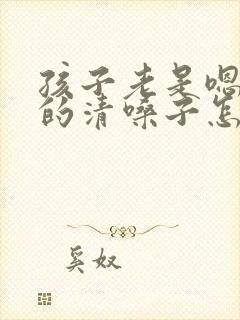 孩子老是嗯
的清嗓子怎
奚奴